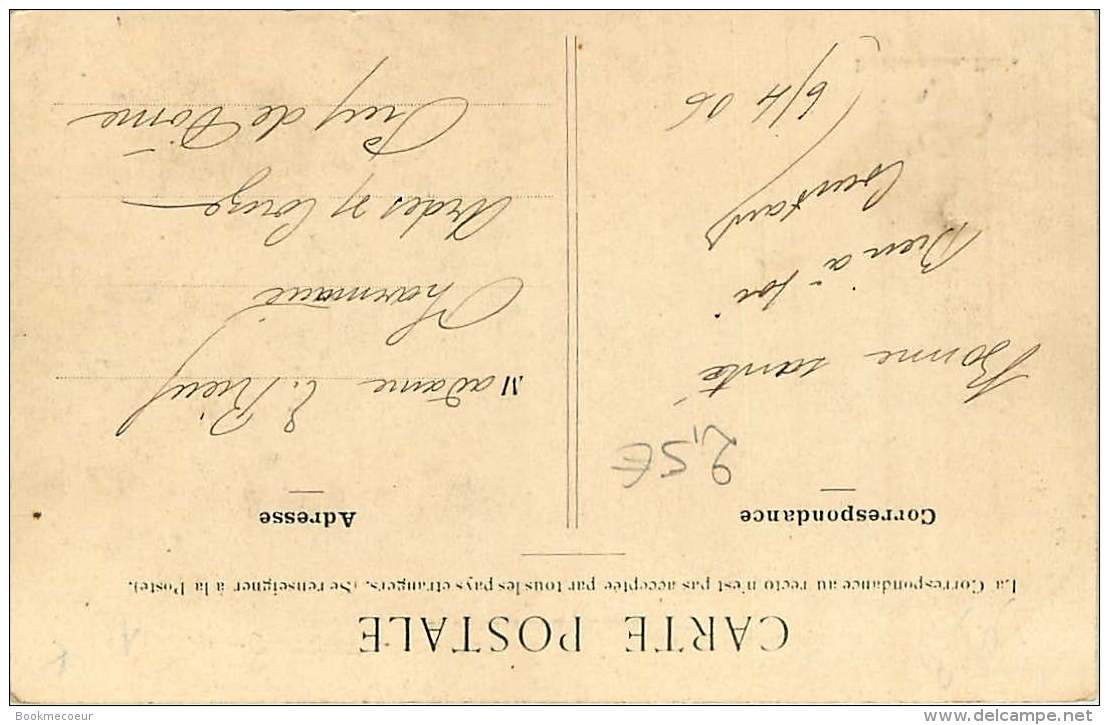 CARTE POSTALE
La Correspondance au recto n'est pas acceptée par tous les pays étrangers. (Se renseigner à la Poste).
Correspondance
Adresse
2,5€
Bonne santé
Bien à toi
Coustaud
(6/4 06
Madame E. Rieuf
Pharmacie
Ardes s/ Couze
Puy de Dôme
Bookmecoeur
www.delcampe.net